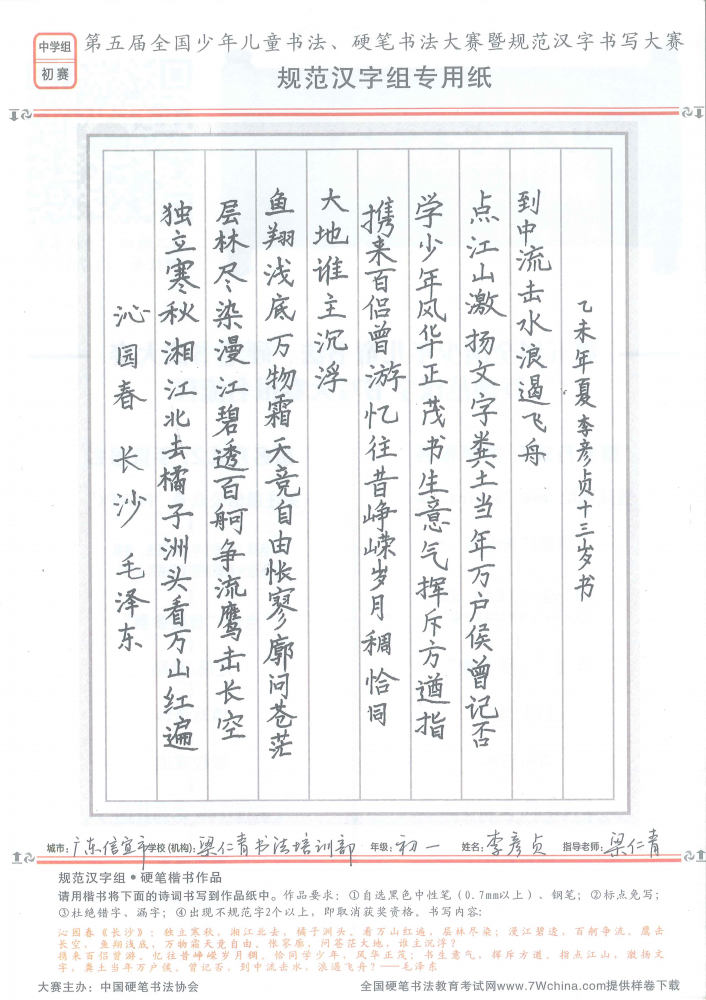 中学组
初赛
第五届全国少年儿童书法、硬笔书法大赛暨规范汉字书写大赛
规范汉字组专用纸
沁园春 长沙 毛泽东
独立寒秋湘江北去橘子洲头看万山红遍
层林尽染漫江碧透百舸争流鹰击长空
鱼翔浅底万物霜天竞自由怅寥廓问苍茫
大地谁主沉浮
携来百侣曾游忆往昔峥嵘岁月稠恰同
学少年风华正茂书生意气挥斥方遒指
点江山激扬文字粪土当年万户侯曾记否
到中流击水浪遏飞舟
乙未年夏李彦贞十三岁书
城市：广东信宜市 学校(机构)：梁仁青书法培训部 年级：初一 姓名：李彦贞 指导老师：梁仁青
规范汉字组•硬笔楷书作品
请用楷书将下面的诗词书写到作品纸中。作品要求：①自选黑色中性笔（0.7mm以上）、钢笔；②标点免写；
③杜绝错字、漏字；④出现不规范字2个以上，即取消获奖资格。书写内容：
沁园春《长沙》：独立寒秋，湘江北去，橘子洲头。看万山红遍，层林尽染；漫江碧透，百舸争流。鹰击
长空，鱼翔浅底，万物霜天竞自由。怅寥廓，问苍茫大地，谁主沉浮？
携来百侣曾游。忆往昔峥嵘岁月稠。恰同学少年，风华正茂；书生意气，挥斥方遒。指点江山，激扬文
字，粪土当年万户侯。曾记否，到中流击水，浪遏飞舟？——毛泽东
大赛主办：中国硬笔书法协会
全国硬笔书法教育考试网www.7Wchina.com提供样卷下载